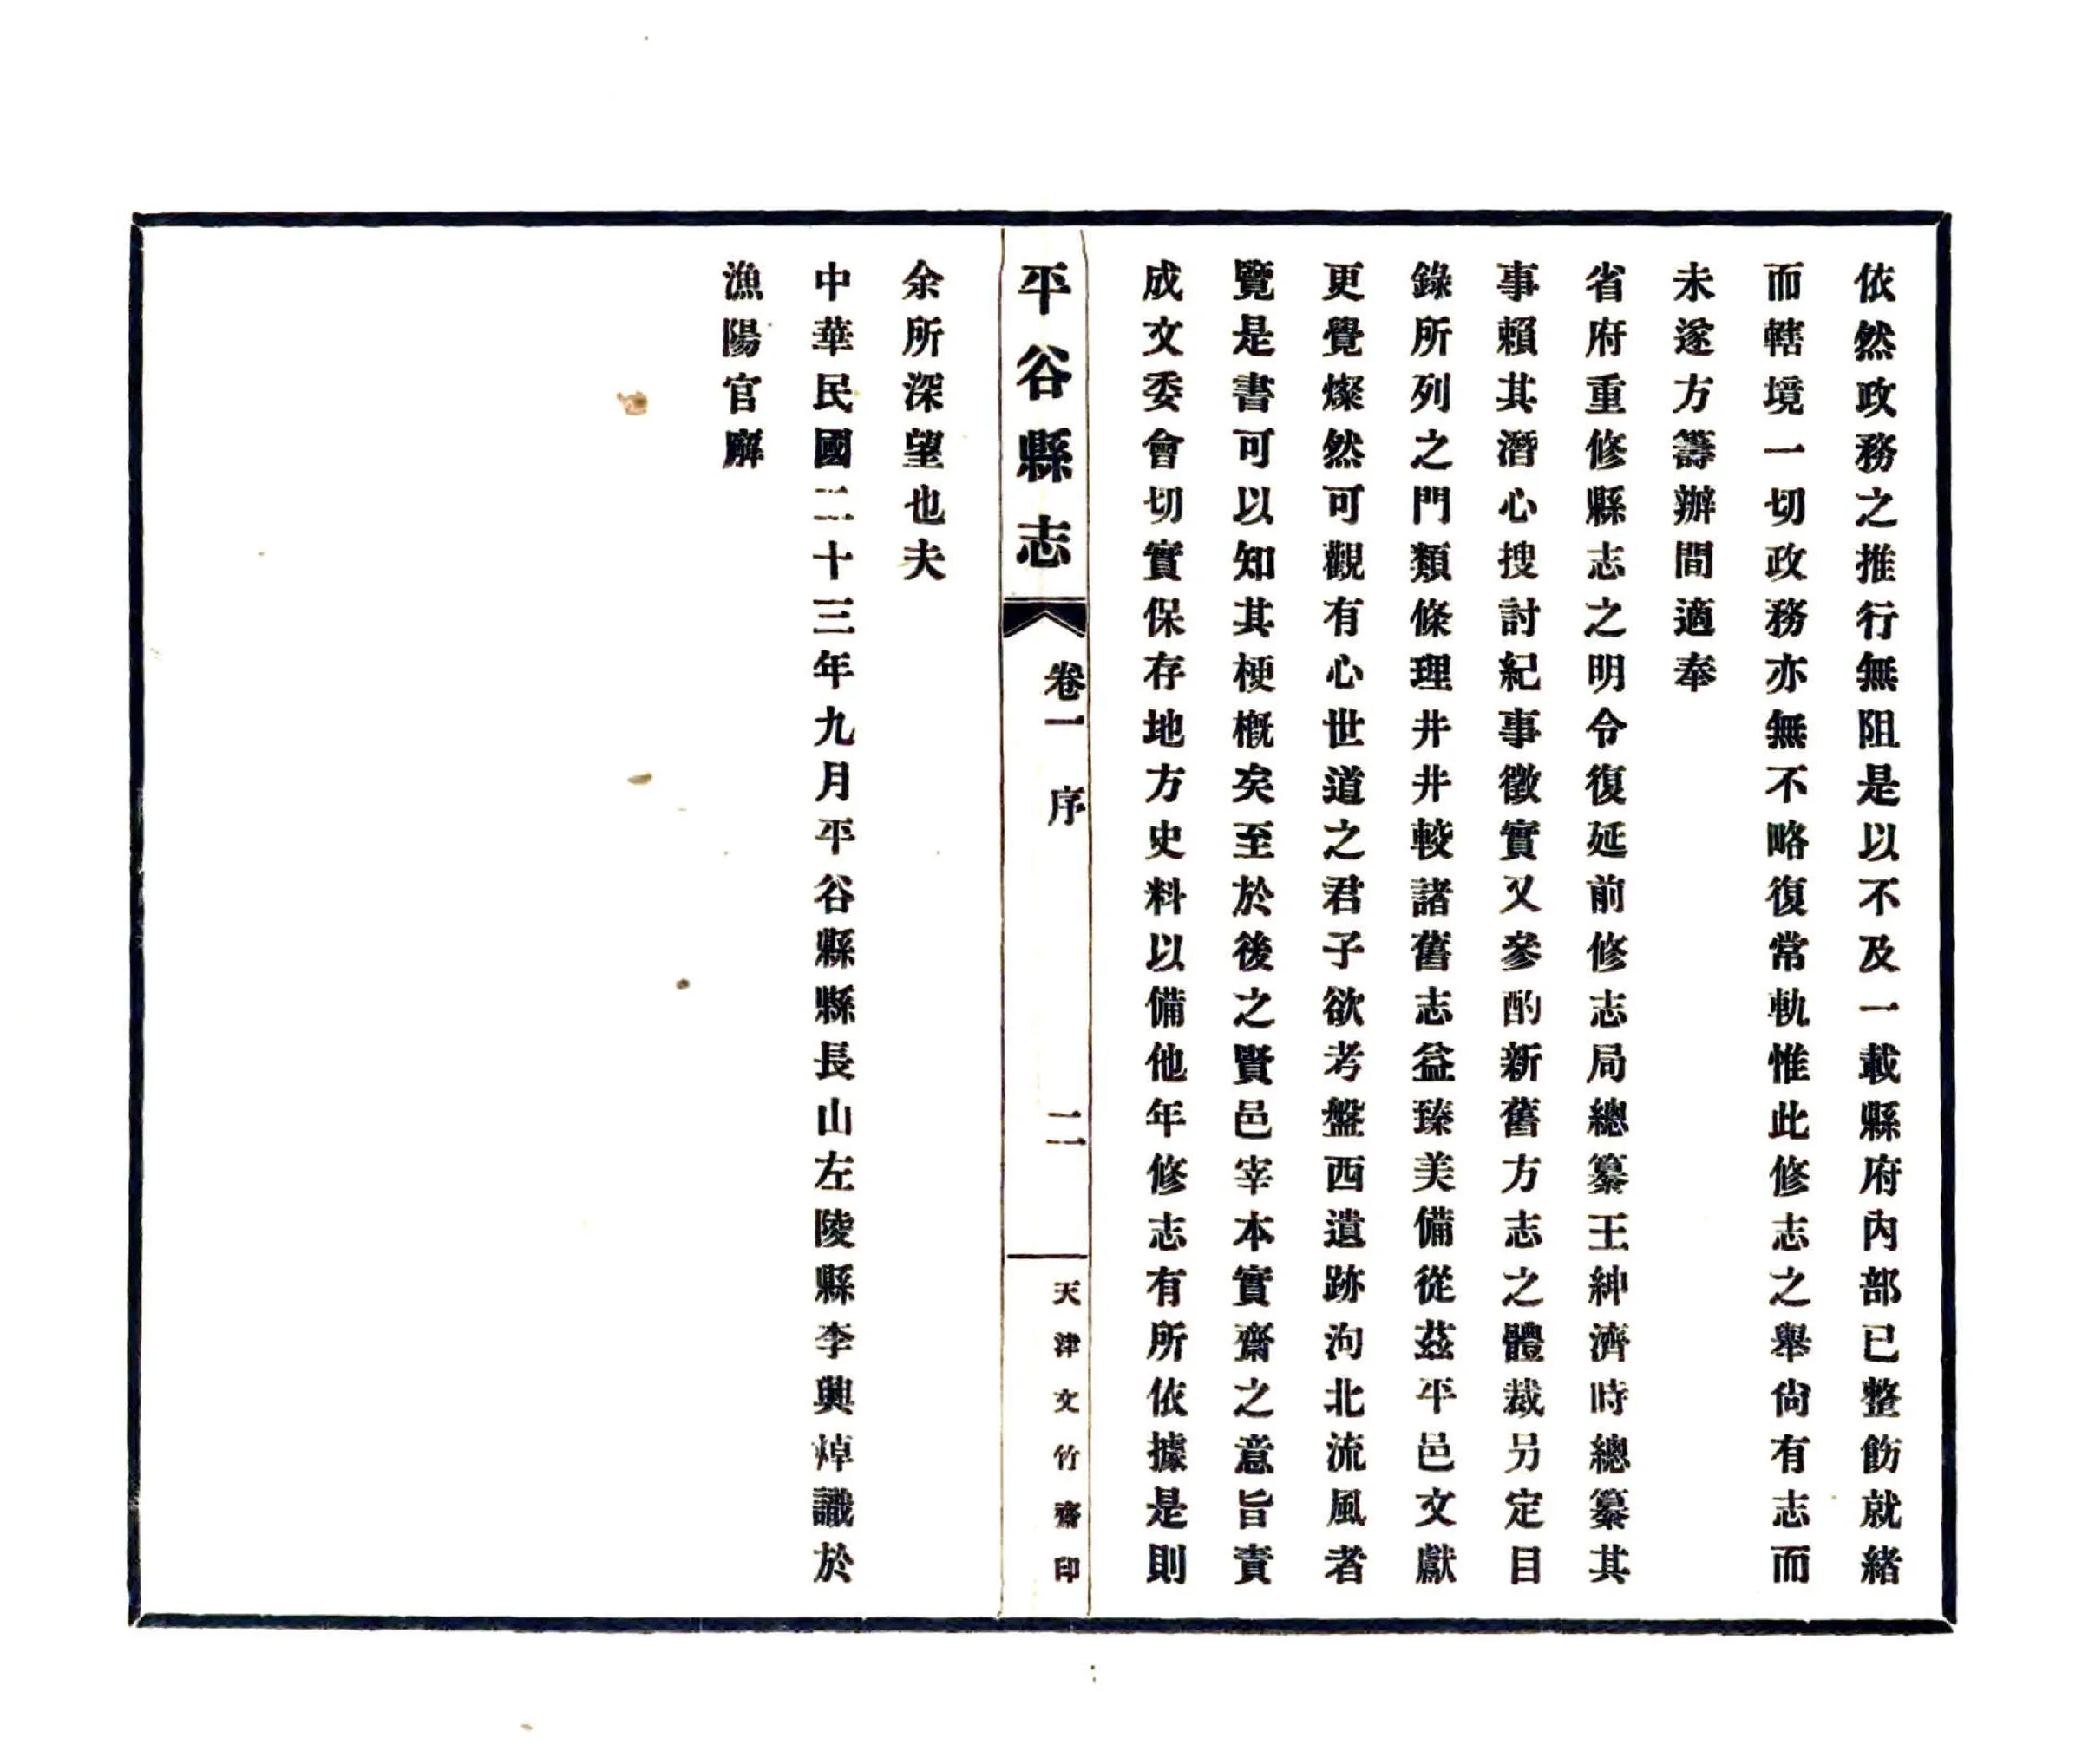 依然政務之推行無阻是以不及一載縣府內部已整飭就緒
而轄境一切政務亦無不略復常軌惟此修志之舉尙有志而
未遂方籌辦間適奉
省府重修縣志之明令復延前修志局總纂王紳濟時總纂其
事賴其潛心搜討紀事徵實又參酌新舊方志之體裁另定目
錄所列之門類條理井井較諸舊志益臻美備從茲平邑文獻
更覺燦然可觀有心世道之君子欲考盤西遺跡泃北流風者
覽是書可以知其梗槪矣至於後之賢邑宰本實齋之意旨責
成文委會切實保存地方史料以備他年修志有所依據是則
平谷縣志
卷一
序
二
天津文竹齋印
余所深望也夫
中華民國二十三年九月平谷縣縣長山左陵縣李興焯識於
漁陽官廨